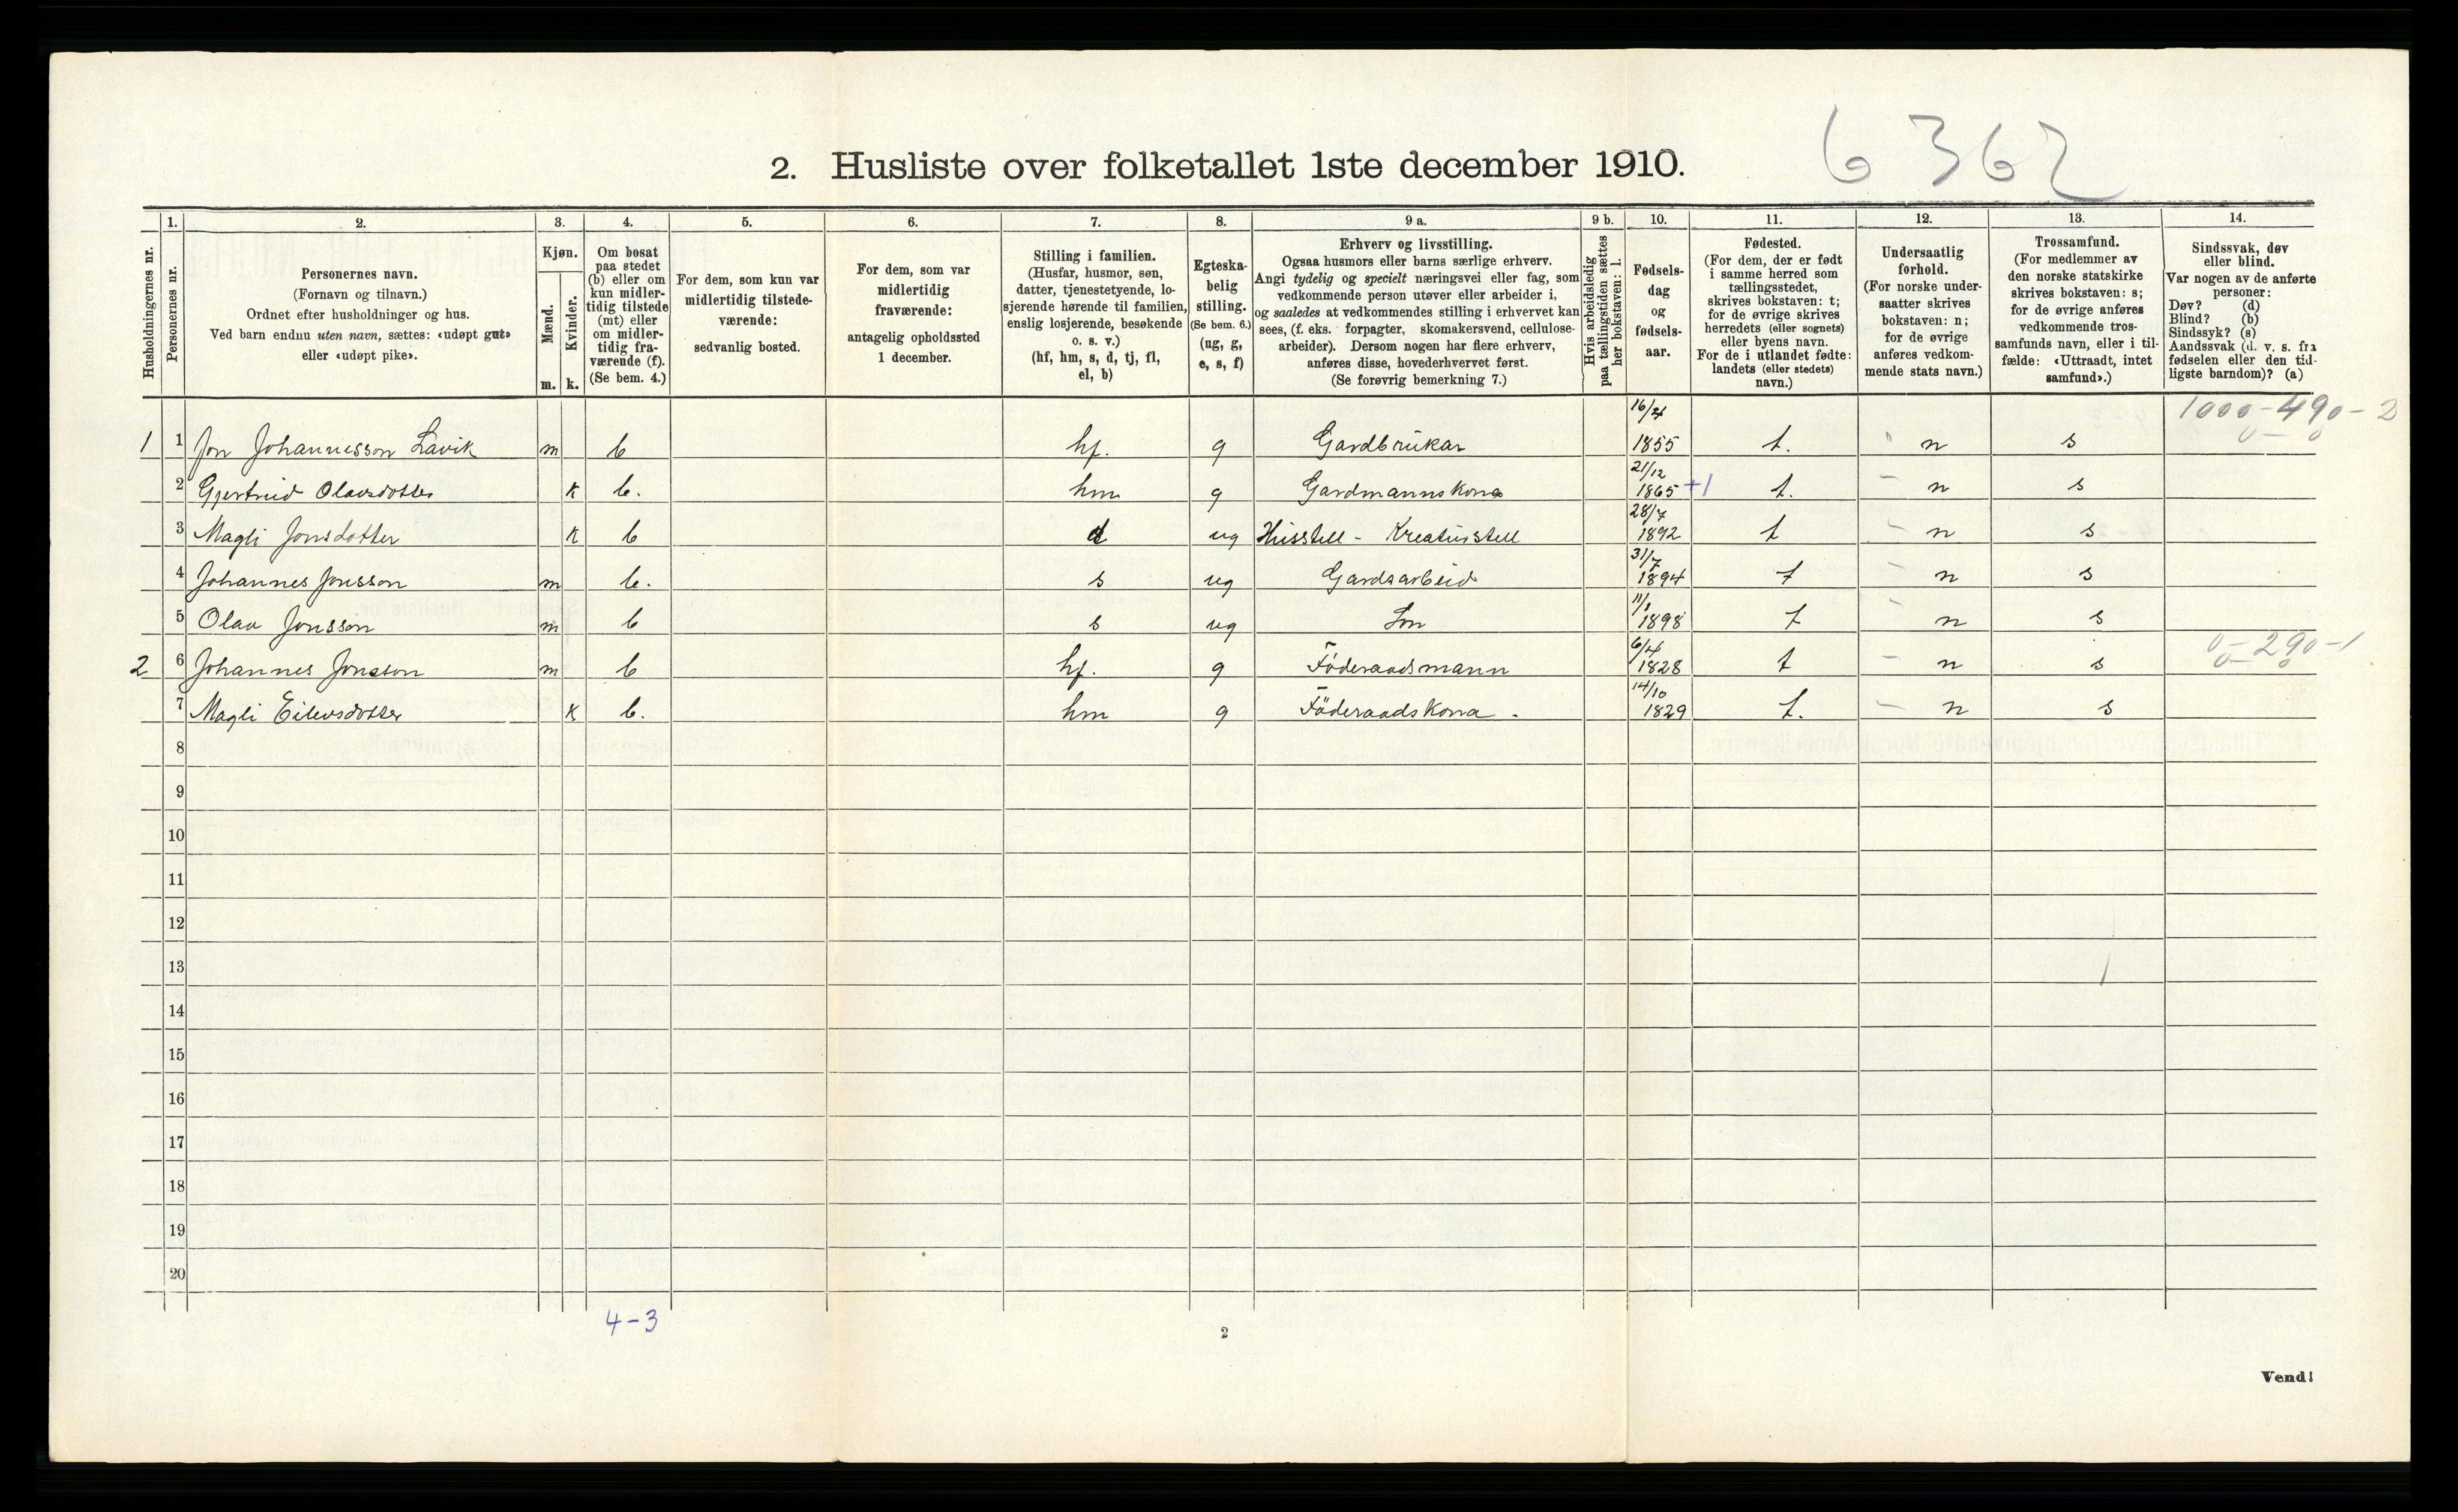 6 362
2. Husliste over folketallet 1ste december 1910.
Husholdningernes nr.
1. Personernes nr.
2. Personernes navn.
(Fornavn og tilnavn.)
Ordnet efter husholdninger og hus.
Ved barn endnu uten navn, sættes: «udøpt gut»
eller «udøpt pike».
3. Kjøn.
Mænd. m.
Kvinder. k.
4. Om bosat
paa stedet
(b) eller om
kun midler-
tidig tilstede
(mt) eller
om midler-
tidig fra-
værende (f).
(Se bem. 4.)
5. For dem, som kun var
midlertidig tilstede-
værende:
sedvanlig bosted.
6. For dem, som var
midlertidig
fraværende:
antagelig opholdssted
1 december.
7. Stilling i familien.
(Husfar, husmor, søn,
datter, tjenestetyende, lo-
sjerende hørende til familien,
enslig losjerende, besøkende
o. s. v.)
(hf, hm, s, d, tj, fl,
el, b)
8. Egteska-
belig
stilling.
(Se bem. 6.)
(ug, g,
e, s, f)
9 a. Erhverv og livsstilling.
Ogsaa husmors eller barns særlige erhverv.
Angi tydelig og specielt næringsvei eller fag, som
vedkommende person utøver eller arbeider i,
og saaledes at vedkommendes stilling i erhvervet kan
sees, (f. eks. forpagter, skomakersvend, cellulose-
arbeider). Dersom nogen har flere erhverv,
anføres disse, hovederhvervet først.
(Se forøvrig bemerkning 7.)
9 b. Hvis arbeidsledig
paa tællingstiden sættes
her bokstaven: l.
10. Fødsels-
dag
og
fødsels-
aar.
11. Fødested.
(For dem, der er født
i samme herred som
tællingsstedet,
skrives bokstaven: t;
for de øvrige skrives
herredets (eller sognets)
eller byens navn.
For de i utlandet fødte:
landets (eller stedets)
navn.)
12. Undersaatlig
forhold.
(For norske under-
saatter skrives
bokstaven: n;
for de øvrige
anføres vedkom-
mende stats navn.)
13. Trossamfund.
(For medlemmer av
den norske statskirke
skrives bokstaven: s;
for de øvrige anføres
vedkommende tros-
samfunds navn, eller i til-
fælde: «Uttraadt, intet
samfund».)
14. Sindssvak, døv
eller blind.
Var nogen av de anførte
personer:
Døv? (d)
Blind? (b)
Sindssyk? (s)
Aandssvak (d. v. s. fra
fødselen eller den tid-
ligste barndom)? (a)
1000-490-2
0-0
1 1 Jon Johannesson Lavik m b hf. g Gardbrukar 16/4 1855 t. " n s
2 Gjertrud Olavsdotter k b. hm g Gardmannskona 21/12 1865 +1 t. - n s
3 Magli Jonsdotter k b d ug Husstell - Kreaturstell 28/7 1892 t - n s
4 Johannes Jonsson m b. s ug Gardsarbeid 31/7 1894 t - n s
5 Olav Jonsson m b s ug Son 11/1 1898 t - n s
2 6 Johannes Jonsson m b hf. g Föderaadsmann 6/4 1828 t - n s 0-290-1
0-0
7 Magli Eilevsdotter k b. hm g Föderaadskona. 14/10 1829 t. - n s
8
9
10
11
12
13
14
15
16
17
18
19
20
4-3
2
Vend!